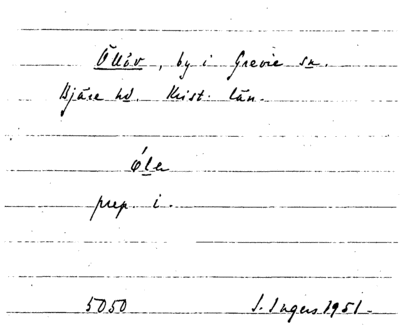 Öllöv, by i Grevie sn.
Bjäre hd. Krist. län.
óla
prep i.
5050 I. Ingers 1951.